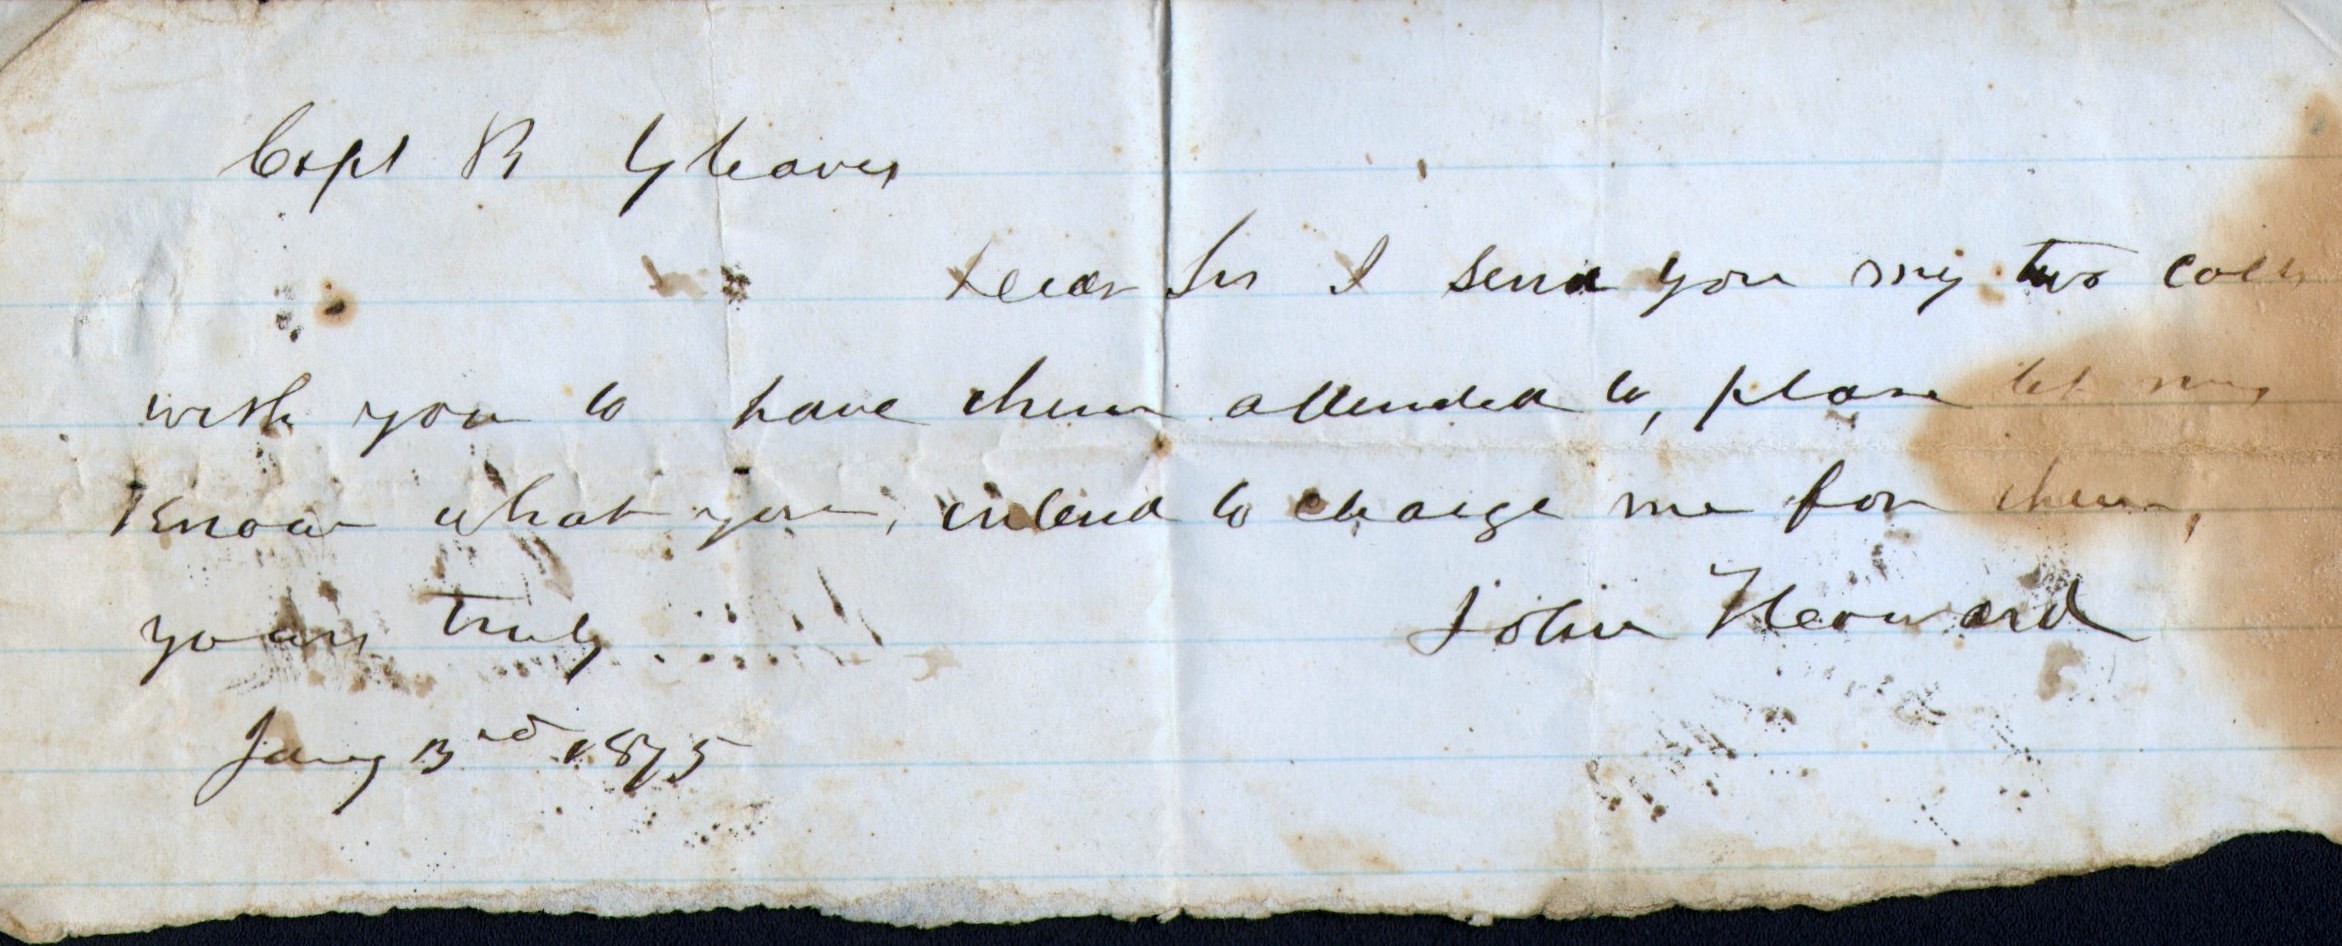 Capt R Gleaves
Dear Sir I send you my two colts
wish you to have them attended to, please let me
Know what you, intend to charge me for them,
yours truly John Howard
Jany 3rd 1875